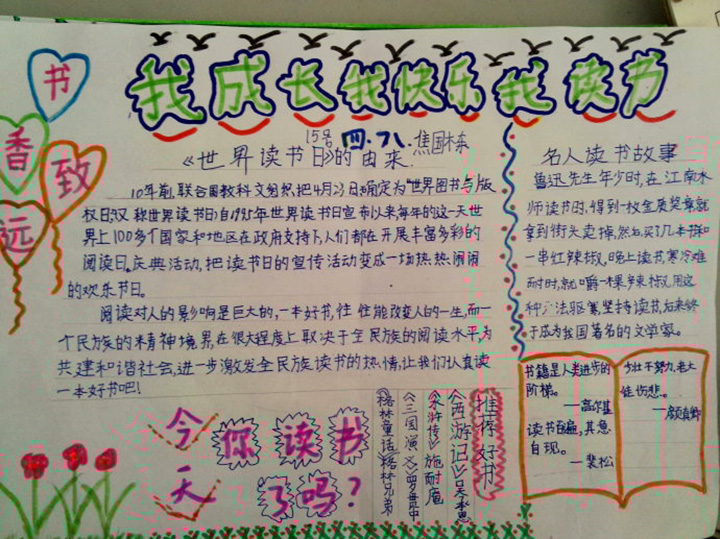 书
香
致
远
我成长我快乐我读书
15号 四·7八·焦国栋
《世界读书日》的由来
10年前,联合国教科文组织把4月23日确定为"世界图书与版
权日"又称世界读书日,自1995年世界读书日宣布以来每年的这一天世
界上100多个国家和地区在政府支持下,人们都在开展丰富多彩的
阅读日。庆典活动,把读书日的宣传活动变成一场热热闹闹
的欢乐节日。
阅读对人的影响是巨大的,一本好书,往往能改变人的一生,而一
个民族的精神境界,在很大程度上取决于全民族的阅读水平,为
共建和谐社会,进一步激发全民族读书的热情,让我们认真读
一本好书吧!
名人读书故事
鲁迅先生年少时,在江南水
师读书时,得到一枚金质奖章就
拿到街头卖掉,然后买了几本书和
一串红辣椒,晚上读书,寒冷难
耐时,就嚼一棵辣椒,用这
种办法驱寒坚持读书,后来终
于成为我国著名的文学家。
书籍是人类进步的
阶梯。
—高尔基
读书百遍,其意
自现。
—裴松
少壮不努力,老大
徒伤悲。
—颜真卿
推荐好书
《西游记》吴承恩
《水浒传》施耐庵
《三国演义》罗贯中
《格林童话》格林兄弟
今天
你读书
了吗?